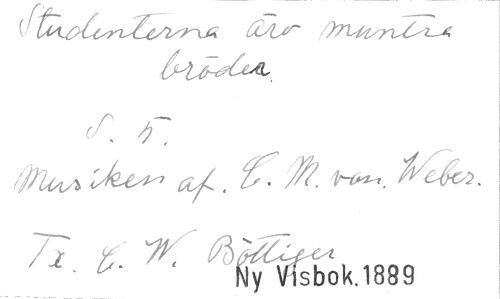 Studenterna äro muntra
bröder.
S. 5.
Musiken af. C. M. von. Weber.
Tx. C. W. Böttiger
Ny Visbok. 1889